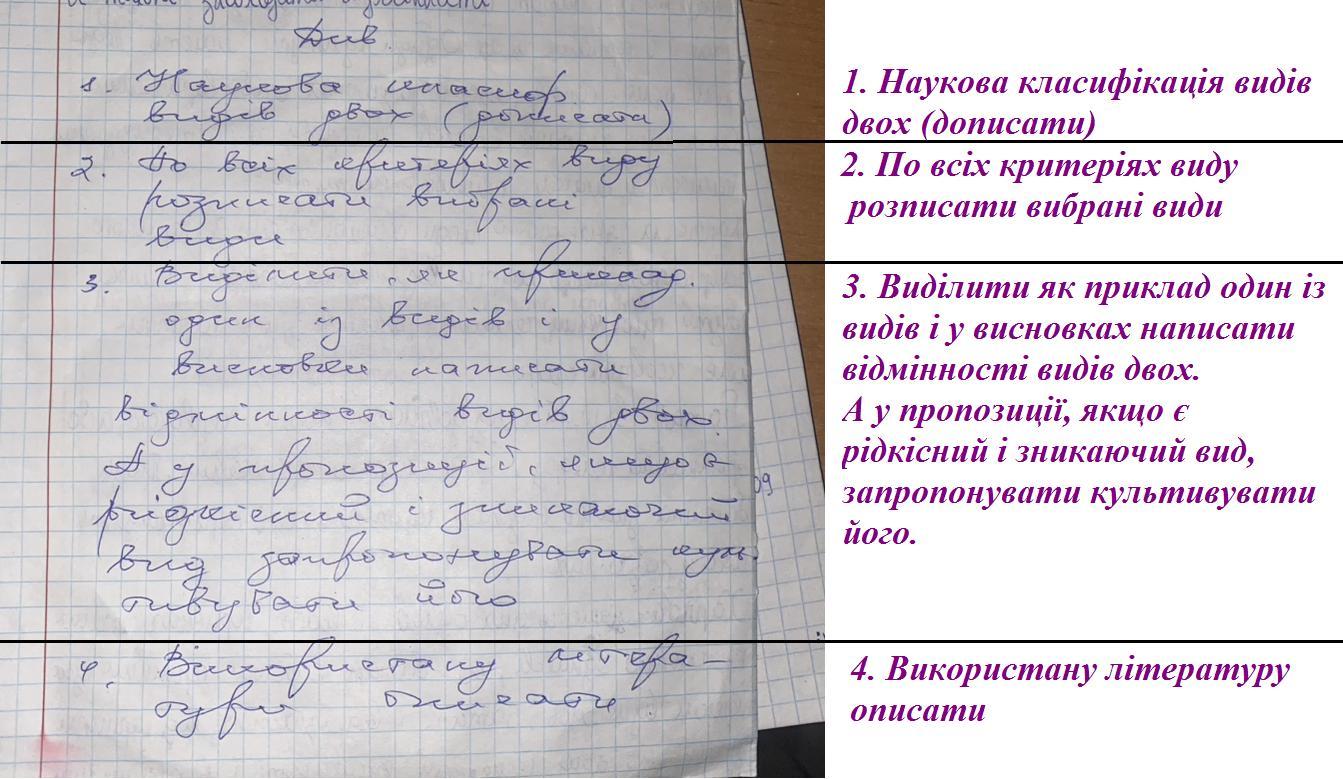 Див.
1. Наукова класиф.
видів двох (дописати)
2. По всіх критеріях виду
розписати вибрані
види
3. Виділити, як приклад.
один із видів і у
висновки написати
відмінності видів двох.
А у пропозиції, якщо є
рідкісний і зникаючий
вид запропонувати куль-
тивувати його
09
4. Використану літера-
тури описати.
1. Наукова класифікація видів
двох (дописати)
2. По всіх критеріях виду
розписати вибрані види
3. Виділити як приклад один із
видів і у висновках написати
відмінності видів двох.
А у пропозиції, якщо є
рідкісний і зникаючий вид,
запропонувати культивувати
його.
4. Використану літературу
описати